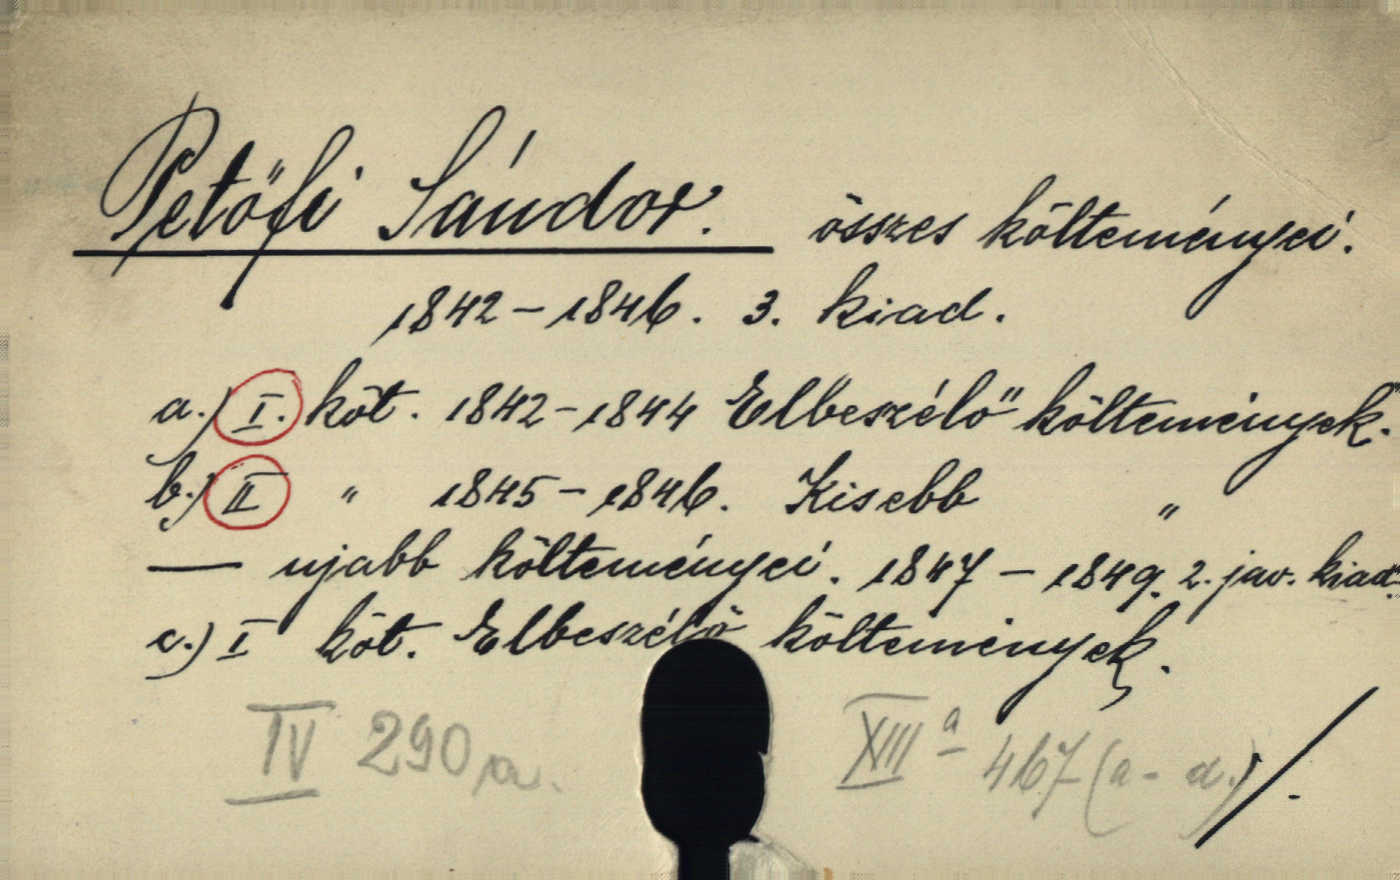 Petőfi Sándor. összes költeményei.
1842-1846. 3. kiad.
a.) I. köt. 1842-1844 Elbeszélő költemények.
b.) II " 1845-1846. Kisebb "
— ujabb költeményei. 1847-1849. 2. jav. kiad.
c.) I köt. Elbeszélő költemények.
IV 290 a. XIII a 467 (a-d.) /.